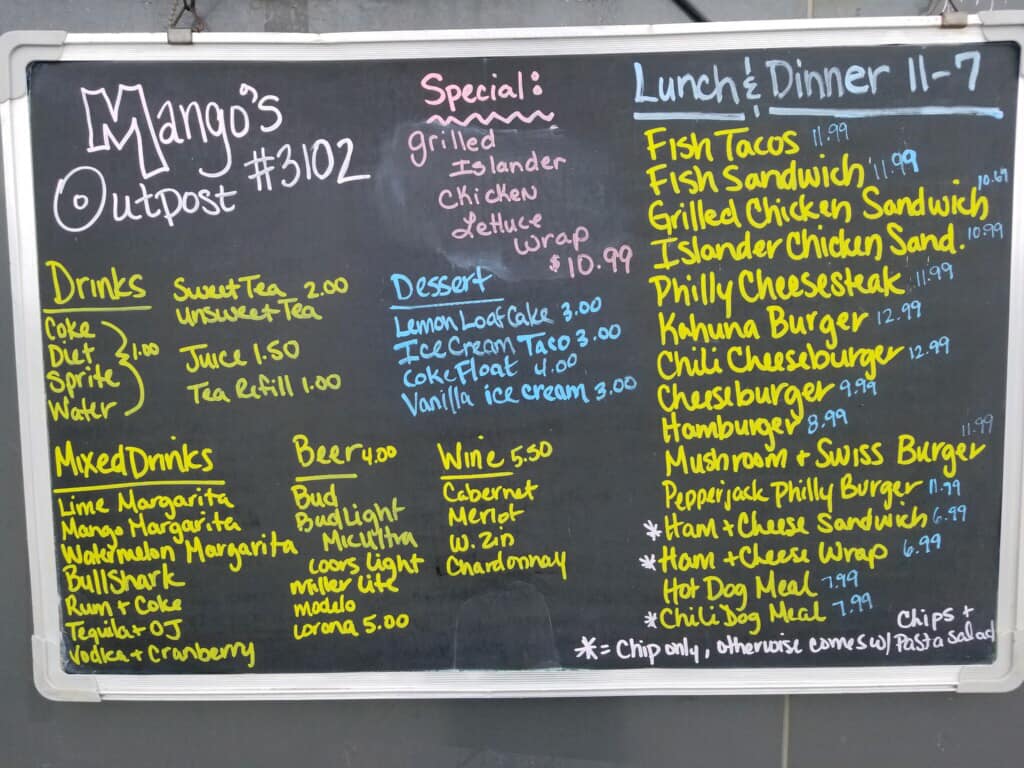 Mango's
Outpost #3102
Special:
grilled
Islander
Chicken
Lettuce
Wrap
$10.99
Drinks
Coke
Diet
Sprite
Water
1.00
Sweet Tea 2.00
Unsweet Tea
Juice 1.50
Tea Refill 1.00
Dessert
Lemon Loaf Cake 3.00
Ice Cream Taco 3.00
Coke Float 4.00
Vanilla ice cream 3.00
Mixed Drinks
Lime Margarita
Mango Margarita
Watermelon Margarita
Bullshark
Rum + Coke
Tequila + OJ
Vodka + Cranberry
Beer 4.00
Bud
Bud Light
Mic Ultra
Coors Light
Miller Lite
modelo
Corona 5.00
Wine 5.50
Cabernet
Merlot
W. Zin
Chardonnay
Lunch & Dinner 11-7
Fish Tacos 11.99
Fish Sandwich 11.99
Grilled Chicken Sandwich 10.69
Islander Chicken Sand. 10.99
Philly Cheesesteak 11.99
Kahuna Burger 12.99
Chili Cheeseburger 12.99
Cheeseburger 9.99
Hamburger 8.99
Mushroom + Swiss Burger 11.99
Pepperjack Philly Burger 11.99
* Ham + Cheese Sandwich 6.99
* Ham + Cheese Wrap 6.99
Hot Dog Meal 7.99
* Chili Dog Meal 7.99
* = Chip only, otherwise comes w/ Chips +
Pasta salad